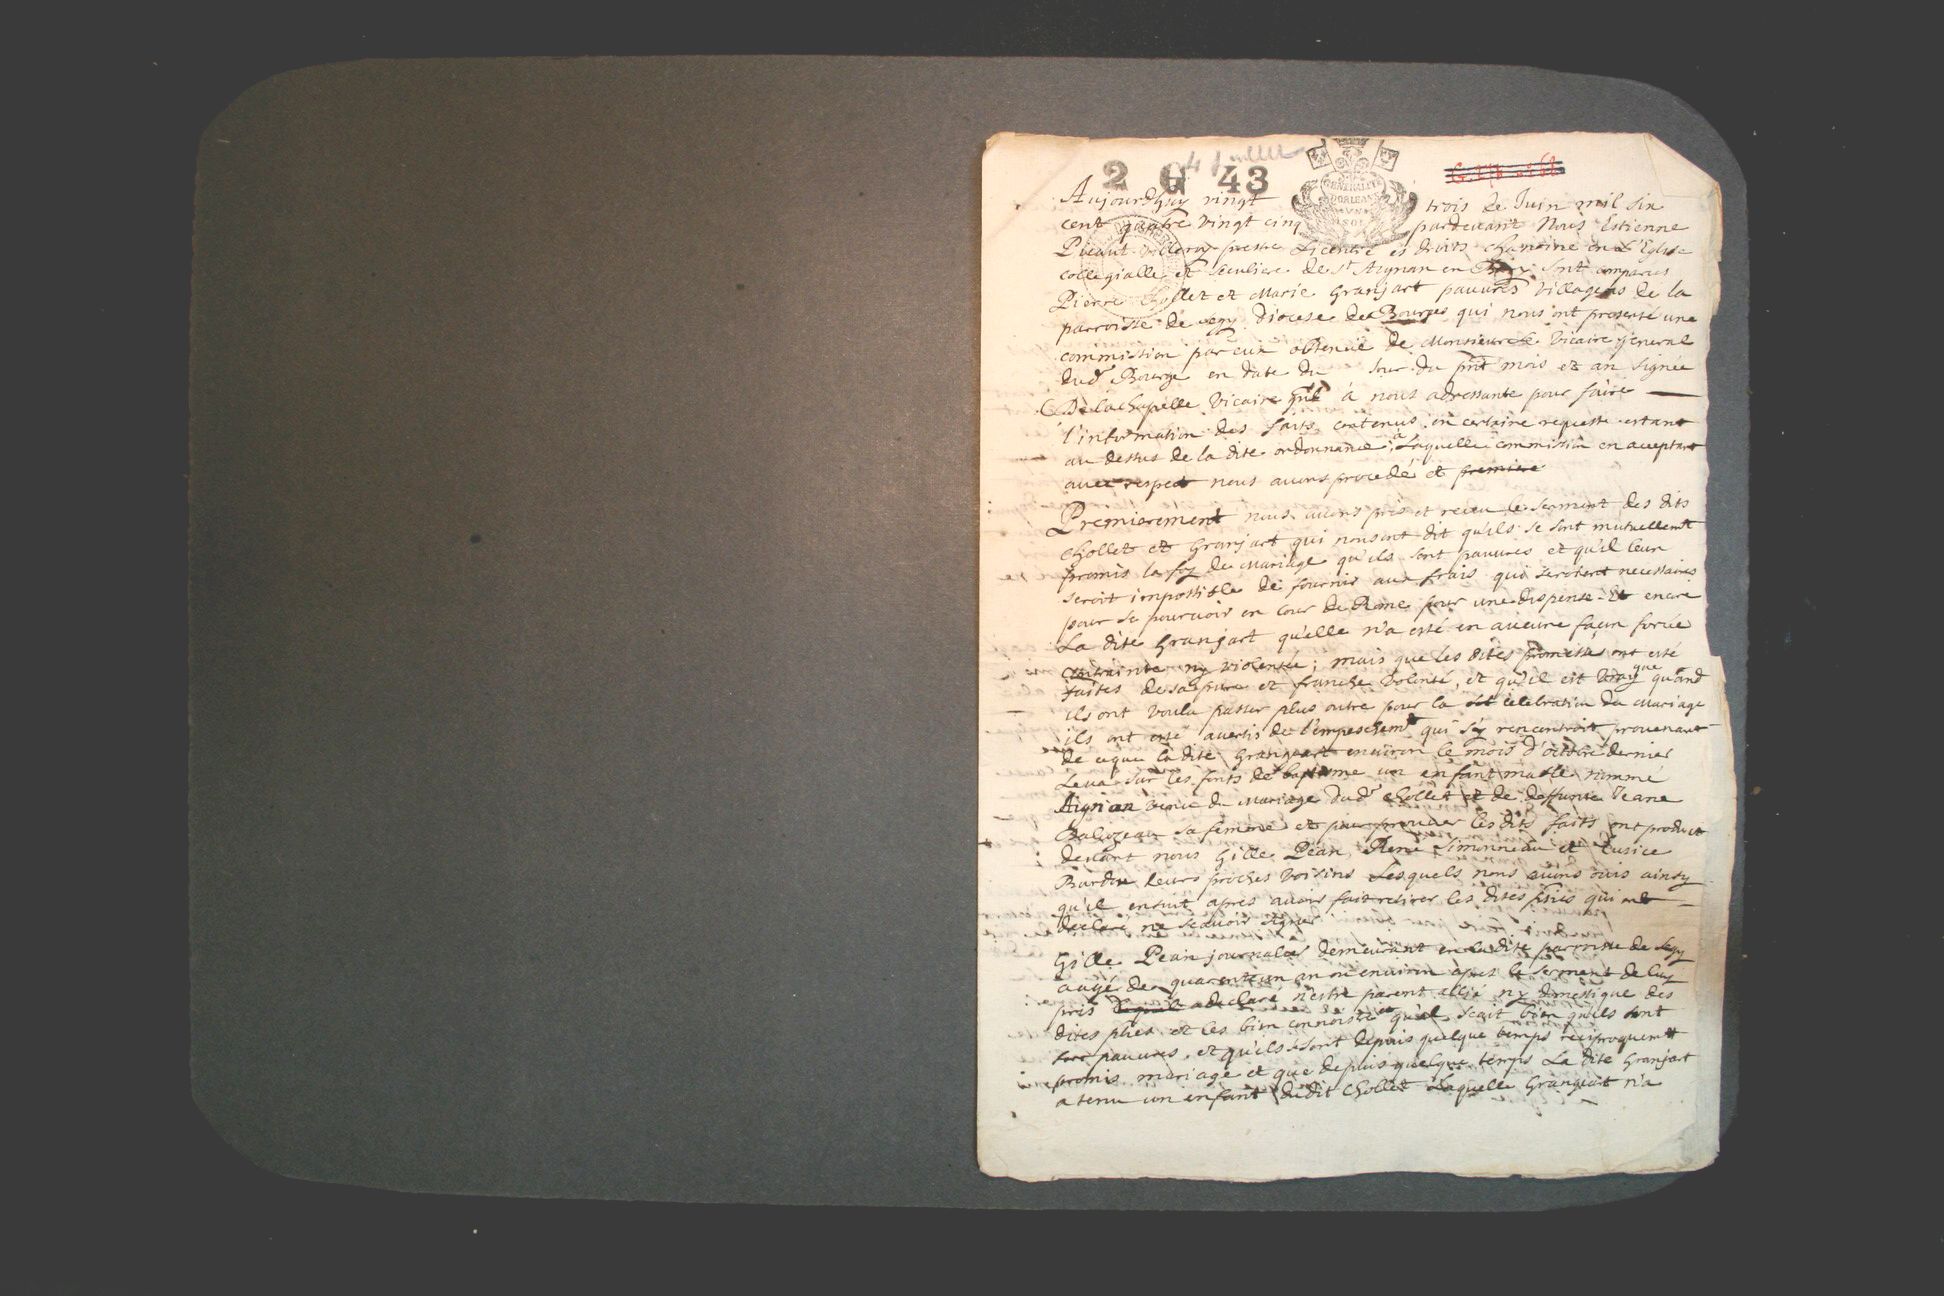 4 Juillet
2 G 43
GENERALITE
D'ORLEANS
VN
SOL
Aujourd'huy vingt trois de Juin mil six
cent quatre vingt cinq pardevant Nous Estienne
prestre Licentié és droits chanoine en L'Eglise
collegialle et seculiere de St Aignan en Berry sont comparus
Pierre Chollet et Marie Granjart pauures villageois de la
parroisse de segy Diocese de Bourges qui nous ont presenté une
commission par eux obtenuë de Monsieur le Vicaire general
dud Bourge en date du Jour du pnt mois et an signée
De la chapelle Vicaire gnl à nous adressante pour faire
l'information des faits contenus en certaine requeste estant
au dessus de la dite ordonnance, à Laquelle commission en acceptant
auec respect nous auons procedé et premiere
Premierement nous auons pris et receu le serment des dits
Chollet et Granjart qui nous ont dit qu'ils se sont mutuellemt
promis la foy de Mariage qu'ils sont pauures et qu'il leur
seroit impossible de fournir aux frais qui seroient necessaires
pour se pouruoir en cour de Rome pour une dispense. Et encore
La dite Granjart qu'elle n'a esté en aucune façon forcée
contrainte ny violentée; mais que les dites promesses ont esté
faites de sa pure et franche volonté, et qu'il est vray que quand
ils ont voulu passer plus outre pour la celebration du Mariage
ils ont esté auertis de l'empeschemt qui s'y rencontroit prouenant
de ceque la dite Granjart enuiron le mois d'octobre dernier
Leua sur les fonts de baptesme un enfant masle nommé
Aignan venu du Mariage dud Chollet et de deffunte Jeane
Baluzeau sa femme et pour prouuer les dits faits ont produit
deuant nous Gille Pean, René Simonneau et Eusice
Bardon leurs proches voisins Lesquels nous auons ouis ainsy
qu'il ensuit apres auoir fait retirer les dites pties qui ont
declaré ne scauoir signer
Gille Pean journalier demeurant en la dite parroisse de segy
aagé de quarente un an ou enuiron apres le serment de luy
pris lequel a declaré n'estre parent allié ny domestique des
dites pties et les bien connoistre et qu'il scait bien qu'ils sont
fort pauures, et qu'ils se sont depuis quelque temps reciproquemt
promis mariage et que depuis quelque temps La dite Granjart
a tenu un enfant dudit Chollet Laquelle Granjart n'a